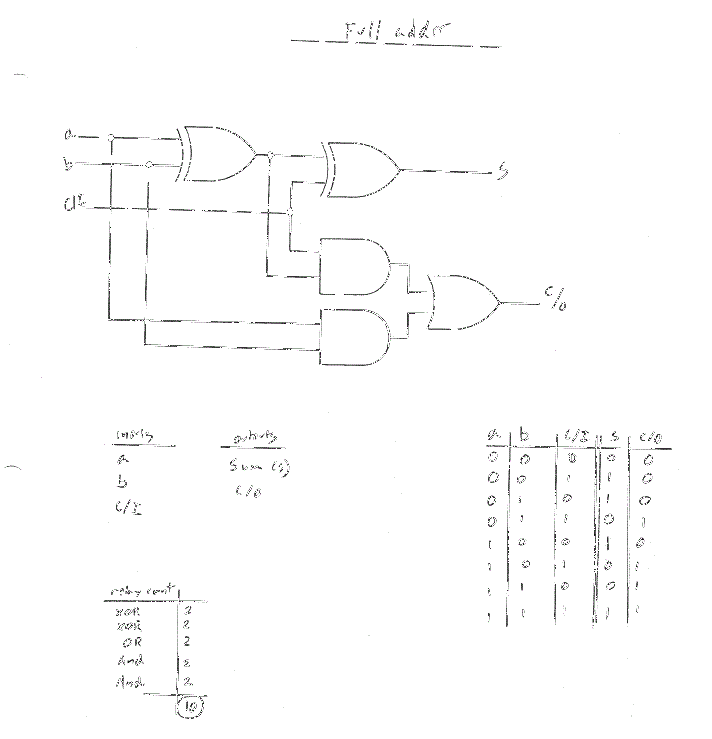 Full addr
a
b
C/I
S
C/O
inputs outputs
a Sum (s)
b C/O
C/I
a b C/I S C/O
0 0 0 0 0
0 0 1 1 0
0 1 0 1 0
0 1 1 0 1
1 0 0 1 0
1 0 1 0 1
1 1 0 0 1
1 1 1 1 1
relay count
XOR 2
XOR 2
OR 2
And 2
And 2
10